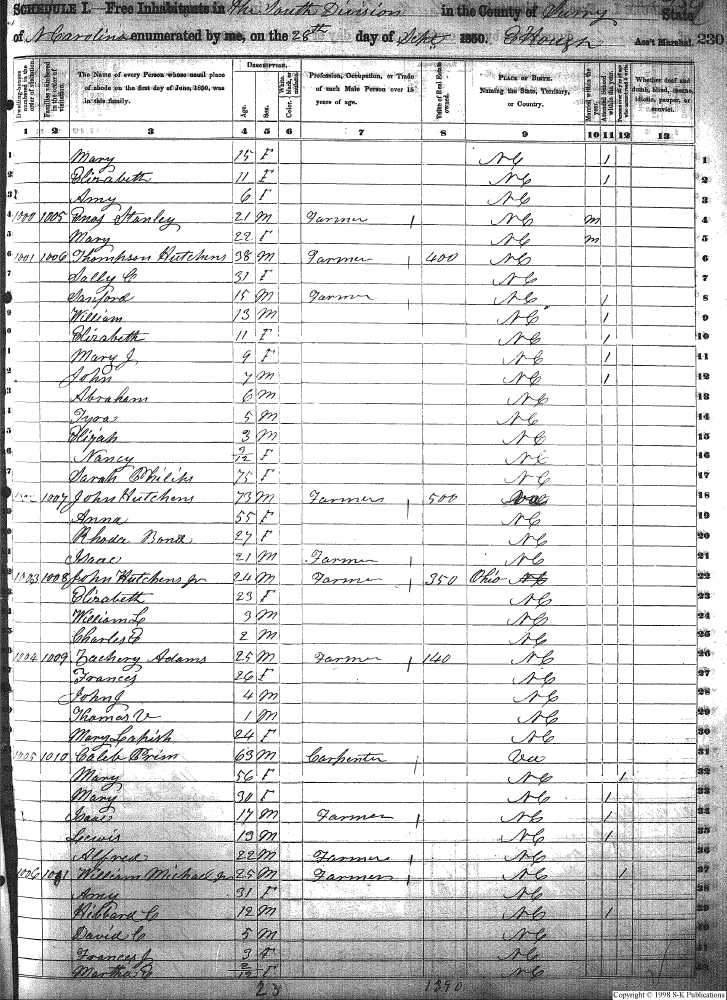 SCHEDULE I.—Free Inhabitants in The South Division in the County of Surry State
of N Carolina enumerated by me, on the 28th day of Sept 1850. Ass't Marshal. 230
Dwelling-houses numbered in the order of visitation.
Families numbered in the order of visitation.
The Name of every Person whose usual place of abode on the first day of June, 1850, was in this family.
DESCRIPTION.
Age.
Sex.
Color.
Profession, Occupation, or Trade of each Male Person over 15 years of age.
Value of Real Estate owned.
PLACE OF BIRTH. Naming the State, Territory, or Country.
Married within the year.
Whether deaf and dumb, blind, insane, idiotic, pauper, or convict.
1 2 3 4 5 6 7 8 9 10 11 12 13
1 Mary 15 F NC 1 1
2 Elizabeth 11 F NC 1 2
3 Amy 6 F NC 3
4 1000 1005 Enos Stanley 21 M Farmer 1 NC m 4
5 Mary 22 F NC m 5
6 1001 1006 Thompson Hutchens 38 M Farmer 1 400 NC 6
7 Sally C 31 F NC 7
8 Sanford 15 M Farmer 1 NC 1 8
9 William 13 M NC 1 9
10 Elizabeth 11 F NC 1 10
11 Mary J 9 F NC 1 11
12 John 7 M NC 1 12
Abraham 6 M NC 13
Tyra 5 M NC 14
Elijah 3 M NC 15
Nancy F NC 16
Sarah Philips 75 F NC 17
1007 John Hutchens 73 M Farmer 1 500 18
Anna 55 F NC 19
Rhoda Bond 27 F NC 20
Isaac 21 M Farmer 1 NC 21
1003 1008 John Hutchens Jr 24 M Farmer 1 350 Ohio NC 22
Elizabeth 23 F NC 23
William L 3 M NC 24
Charles E 2 M NC 25
1004 1009 Zachery Adams 25 M Farmer 1 140 NC 26
Frances 26 F NC 27
John J 4 M NC 28
Thomas V 1 M NC 29
Mary Lapish 24 F NC 30
1005 1010 Caleb Prim 63 M Carpenter 1 Va 31
Mary 56 F NC 1 32
Mary 30 F NC 1 33
Isaac 17 M Farmer 1 NC 1 34
Lewis 19 M NC 1 35
Alfred 22 M Farmer 1 NC 36
1006 1011 William Michael Jr 25 M Farmer 1 NC 1 37
Amy 31 F NC 38
Hibbard C 12 M NC 1 39
David C 5 M NC
Frances J 3 F NC
Martha E F NC
23 1390
Copyright © 1998 S-K Publications